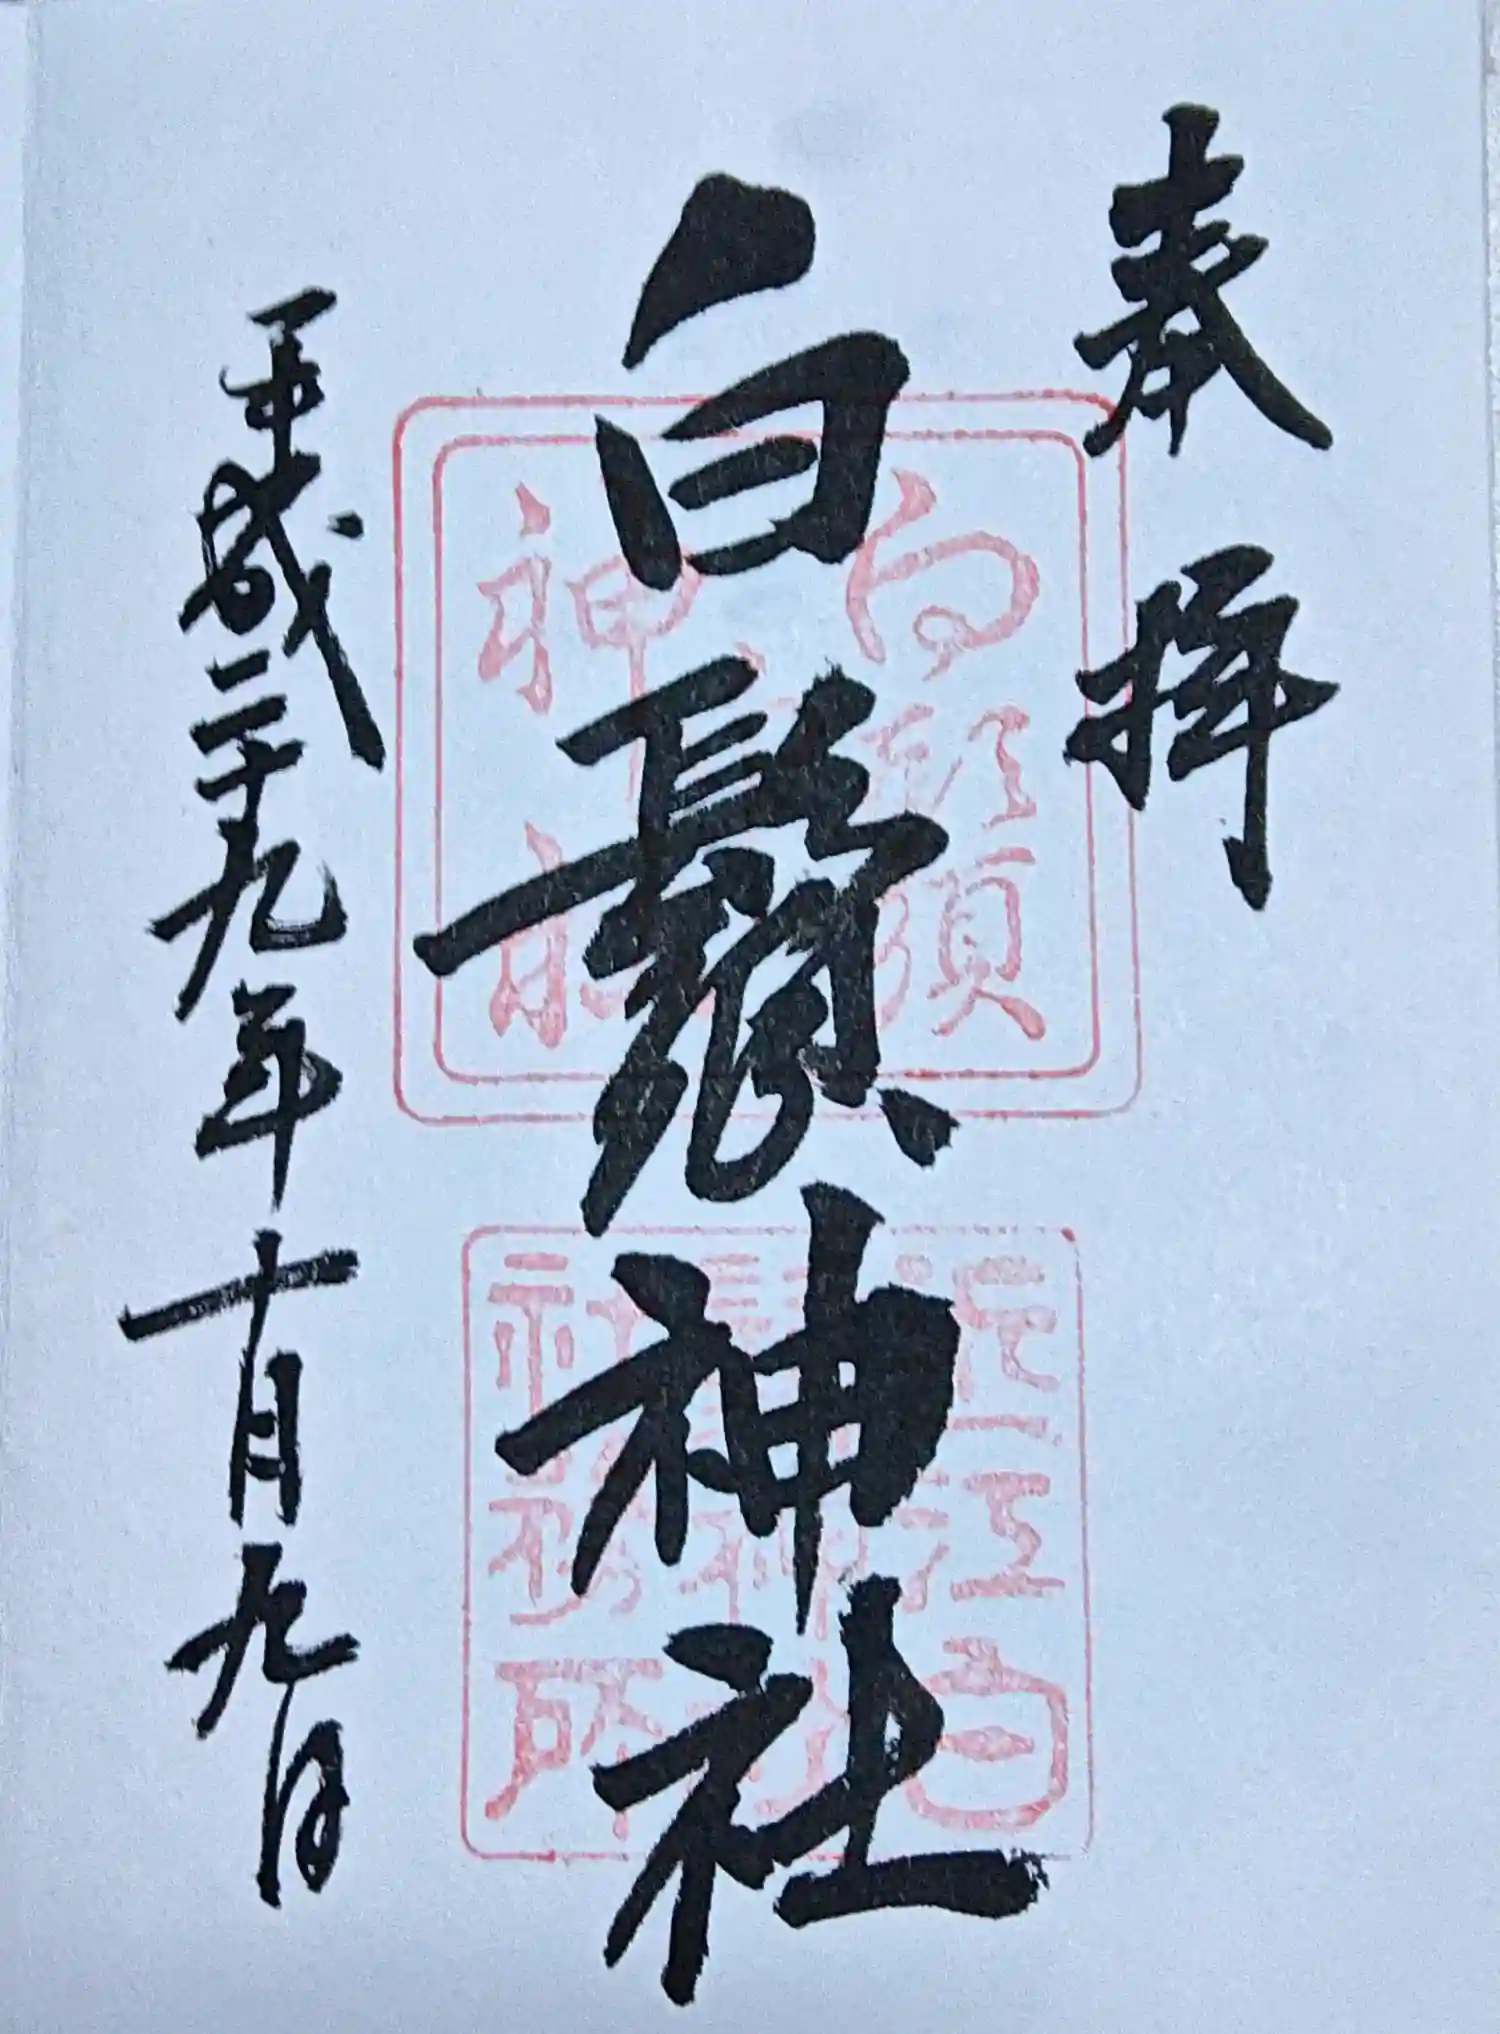 奉拝
白鬚神社
平成二十九年十月九日
白鬚
神社
近江白
鬚神社
社務所